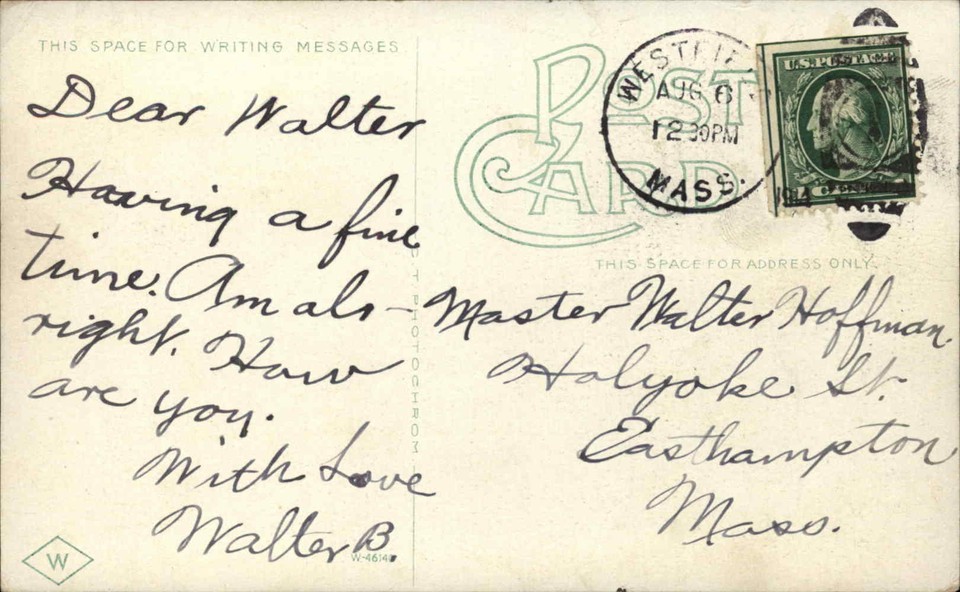 THIS SPACE FOR WRITING MESSAGES
Dear Walter
Having a fine
time. Am alo-
right. How
are you.
With Love
Walter B.
W
W-4614
POST
CARD
MASS.
AUG 6
12 30PM
1914
U.S. POSTAGE
THIS SPACE FOR ADDRESS ONLY.
Master Walter Hoffman.
Holyoke St.
Easthampton
Mass.
PHOTOCHROM